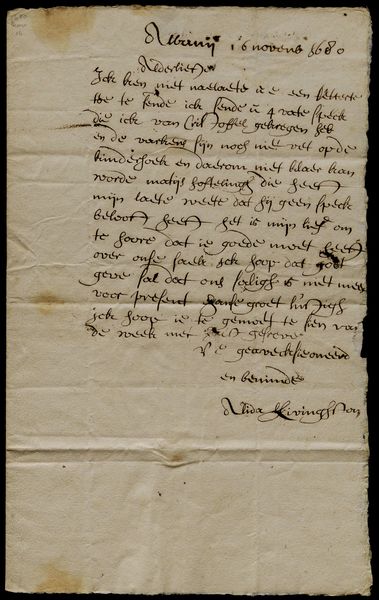 Albanij 16 novemb 1680
Alderliefste
Ick kien niet naelaete ue een lettertie
toe te sende ick sende u 4 vate speck
die ick van Cril Joffel gekregen heb
en de varkens sijn noch niet vet op de
kinderhoek en daerom niet klaer kan
worde matijs hoftelingh die heeft
mijn laete weete dat hij geen speck
beloof heeft het is mijn lief om
te hoore dat ie goede moet heeft
over onse saeck ick hoop dat godt
geve sal dat ons saligh is niet meer
voor present hanse groet
Ick hoop ie te gemoet te sien van
de week met
U e geaeffecksioneerde
en beminde
Alida Livinghston